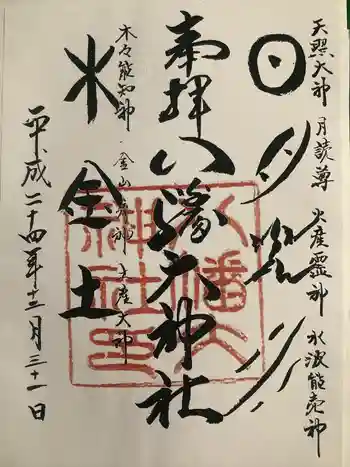 天照大神 月読尊 火産霊神 水波能売神
日月
奉拝 八幡大神社
八幡大神社印
木々能知神・金山彦神・土産大神
木金土
平成二十四年十二月三十一日